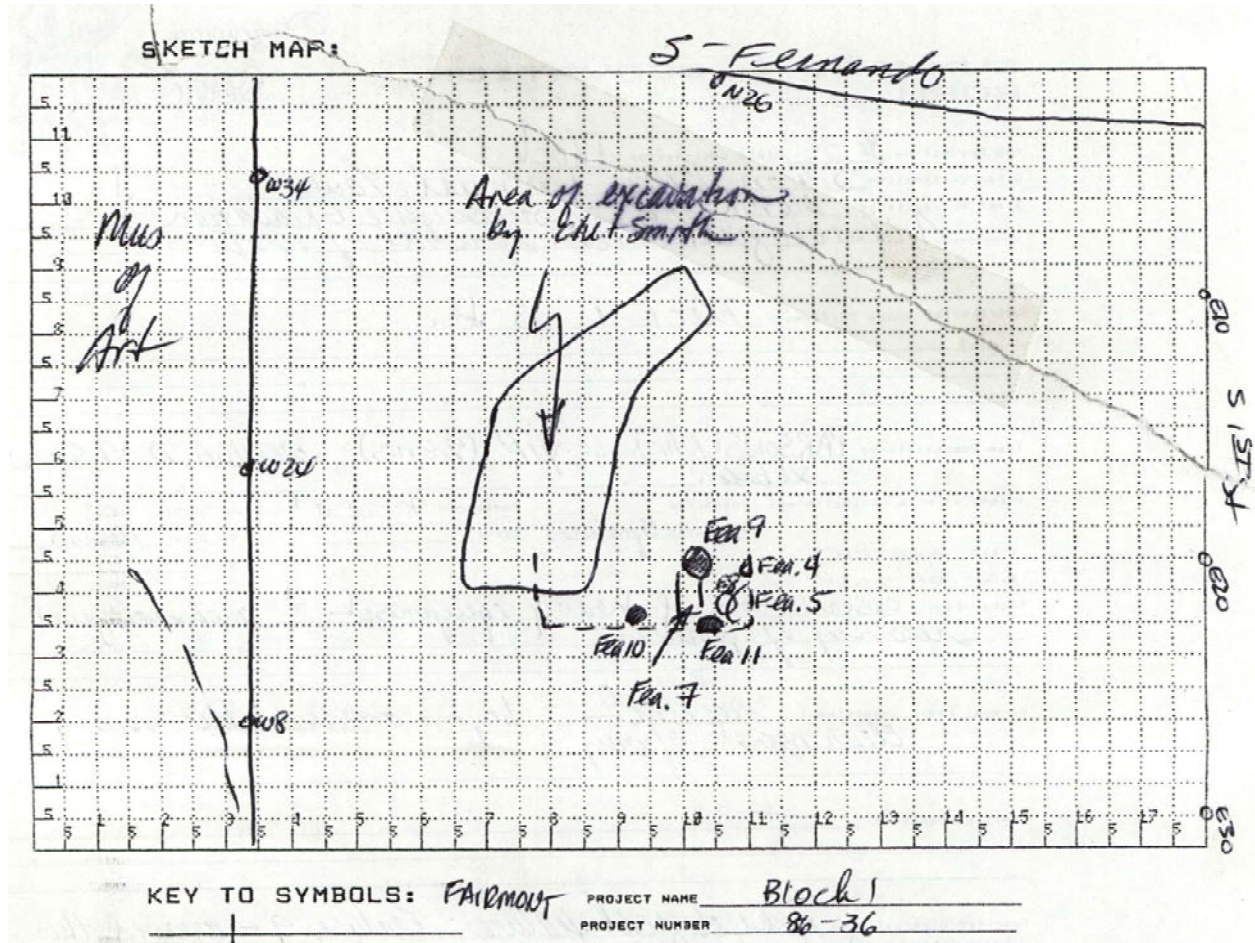 SKETCH MAP:
S- Fernando
N26
W34
Area of excavation
by
Mus
of
Art
E10
S 1ST St
W24
Fea 9
Fea. 4
Fea. 5
E20
Fea 10
Fea 11
Fea. 7
W8
E30
5
11
5
10
5
9
5
8
5
7
5
6
5
5
5
4
5
3
5
2
5
1
5
5 1 5 2 5 3 5 4 5 5 5 6 5 7 5 8 5 9 5 10 5 11 5 12 5 13 5 14 5 15 5 16 5 17 5
KEY TO SYMBOLS: FAIRMONT PROJECT NAME Block 1
PROJECT NUMBER 86-36